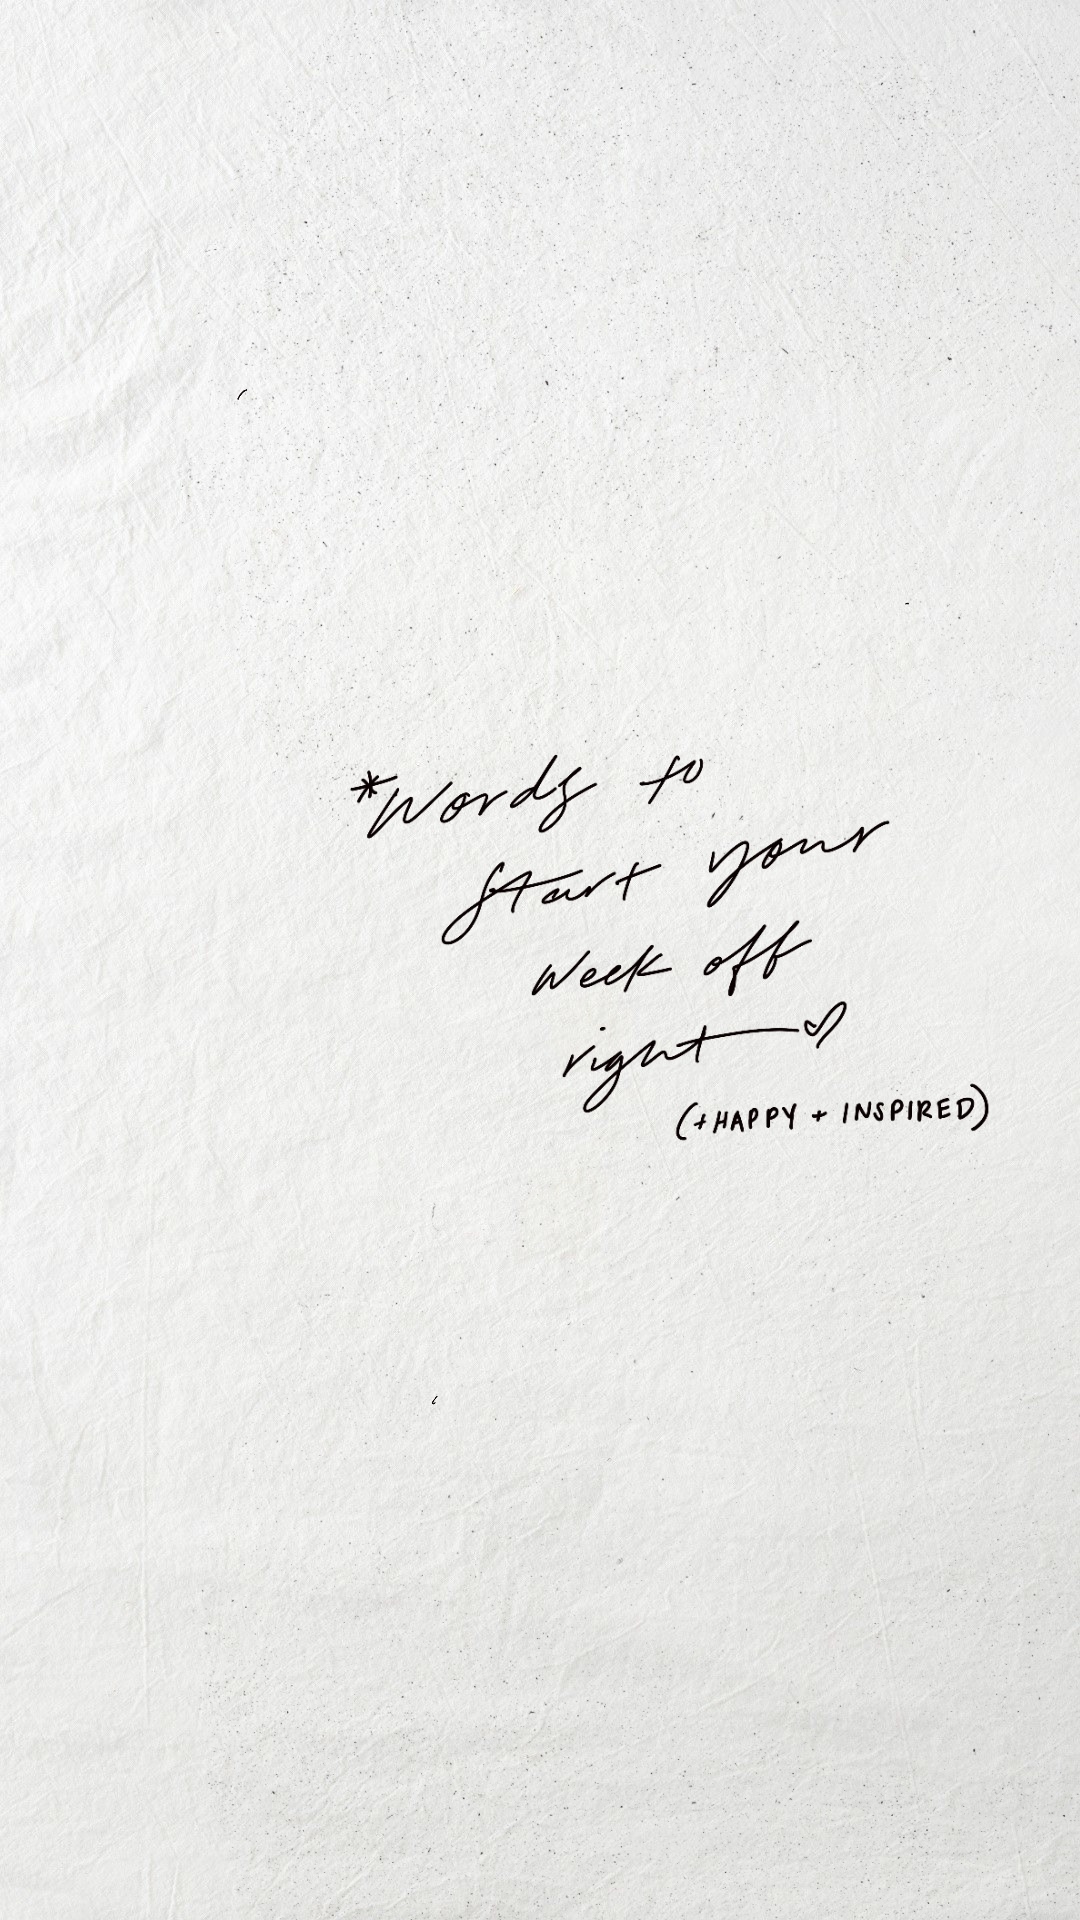 *Words to
start your
week off
right
(+HAPPY + INSPIRED)